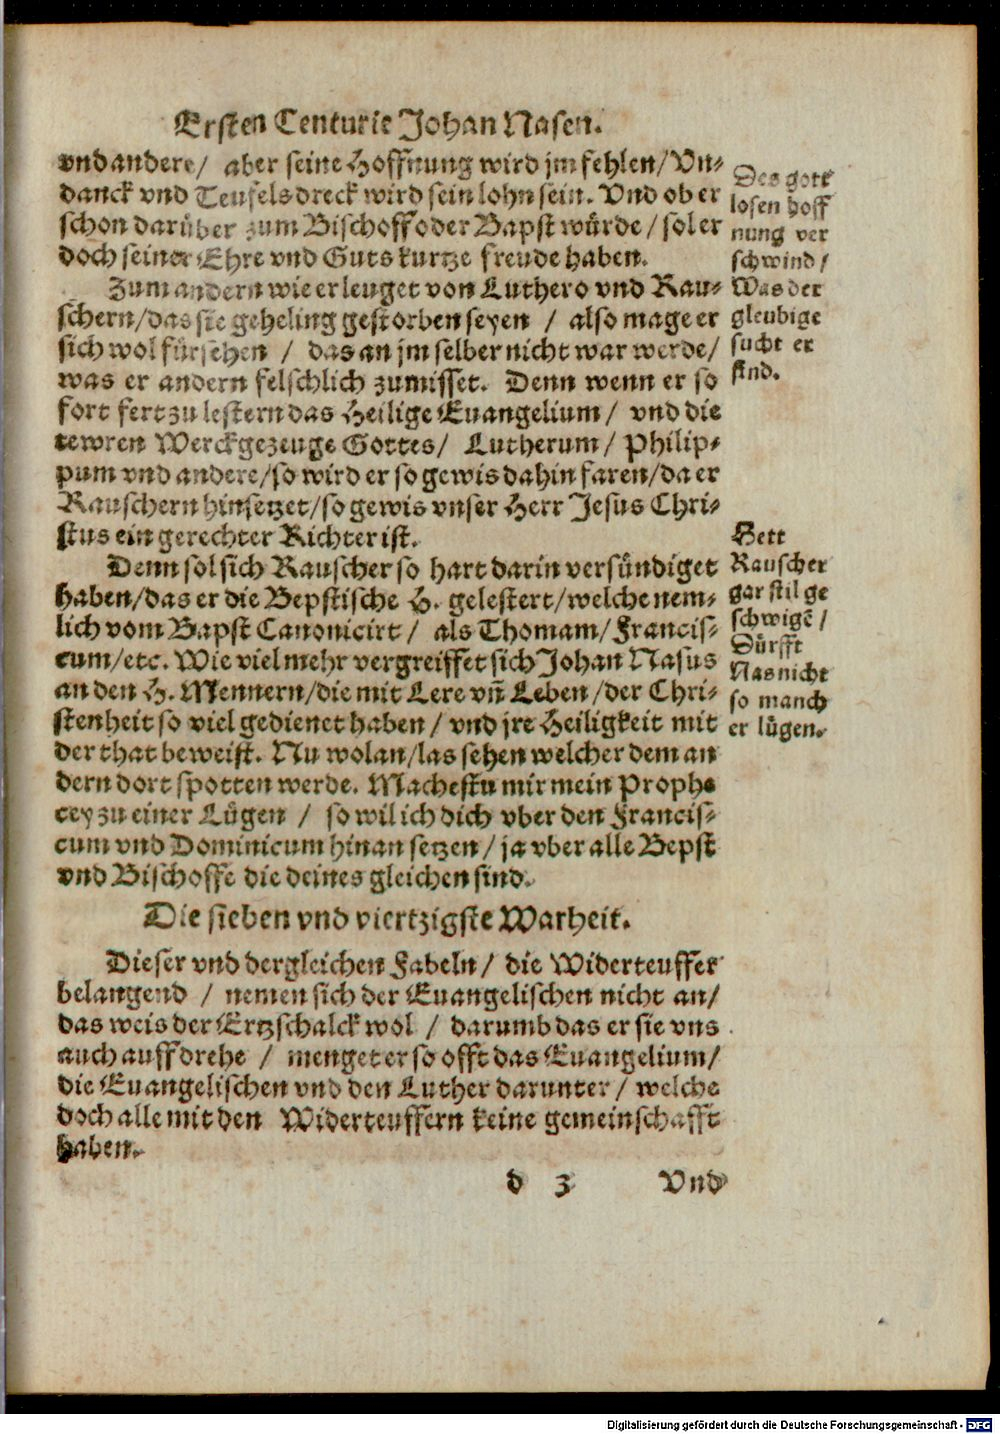 Ersten Centurie Johan Nasen.
vnd andere/ aber seine Hoffnung wird jm fehlen/ Vn-
danck vnd Teufelsdreck wird sein lohn sein. Vnd ob er
schon darüber zum Bischoff oder Bapst würde/ sol er
doch seiner Ehre vnd Guts kurtze freude haben.
Zum andern wie er leuget von Luthero vnd Rau-
schern/ das sie geheling gestorben seyen / also mage er
sich wol fürsehen / das an jm selber nicht war werde/
was er andern felschlich zumisset. Denn wenn er so
fort fert zu lestern das Heilige Euangelium/ vnd die
tewren Werckgezeuge Gottes/ Lutherum/ Philip-
pum vnd andere/ so wird er so gewis dahin faren/ da er
Rauschern hinsetzet/ so gewis vnser Herr Jesus Chri-
stus ein gerechter Richter ist.
Denn sol sich Rauscher so hart darin versündiget
haben/ das er die Bepstische H. gelestert/ welche nem-
lich vom Bapst Canonicirt / als Thomam/ Francis-
cum/ etc. Wie viel mehr vergreiffet sich Johan Nasus
an den H. Mennern/ die mit Lere vñ Leben / der Chri-
stenheit so viel gedienet haben / vnd jre Heiligkeit mit
der that beweist. Nu wolan/ las sehen welcher dem an
dern dort spotten werde. Machestu mir mein Prophe
cey zu einer Lügen / so wil ich dich vber den Francis-
cum vnd Dominicum hinan setzen / ja vber alle Bepst
vnd Bischoffe die deines gleichen sind.
Die sieben vnd viertzigste Warheit.
Dieser vnd dergleichen Fabeln/ die Widerteuffer
belangend / nemen sich der Euangelischen nicht an/
das weis der Ertzschalck wol / darumb das er sie vns
auch auff drehe / menget er so offt das Euangelium/
die Euangelischen vnd den Luther darunter / welche
doch alle mit den Widerteuffern keine gemeinschafft
haben.
d 3 Vnd
Des gott
losen hoff
nung ver
schwind/
Was der
gleubige
sucht er
find.
Hett
Rauscher
gar stil ge
schwigẽ /
Dürfft
Nas nicht
so manch
er lügen.
Digitalisierung gefördert durch die Deutsche Forschungsgemeinschaft - DFG